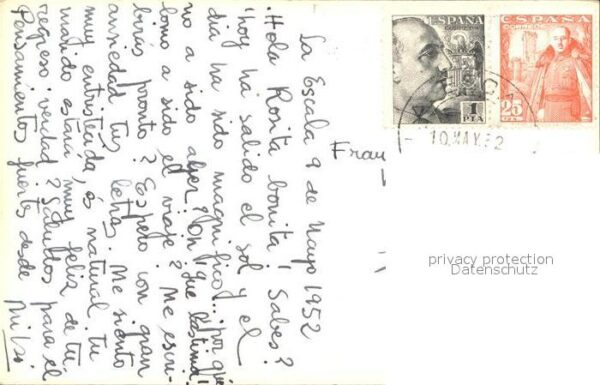 La Escala 9 de Mayo 1952
¡Hola Rosita bonita! ¿Sabes?
¡hoy ha salido el sol y el
dia ha sido magnifico... por que
no a sido ayer? Oh! que lastima!
Como a sido el viaje? Me escri-
birás pronto? Espero con gran
ansiedad tus letras. Me siento
muy entristecida, es natural tu
marido estara muy feliz de tu
regreso verdad? Saluditos para el
Pensamientos fuertes desde
Frau
ESPAÑA
CORREOS
1
PTA
ESPAÑA
25
CTS
10.MAY.52
privacy protection
Datenschutz